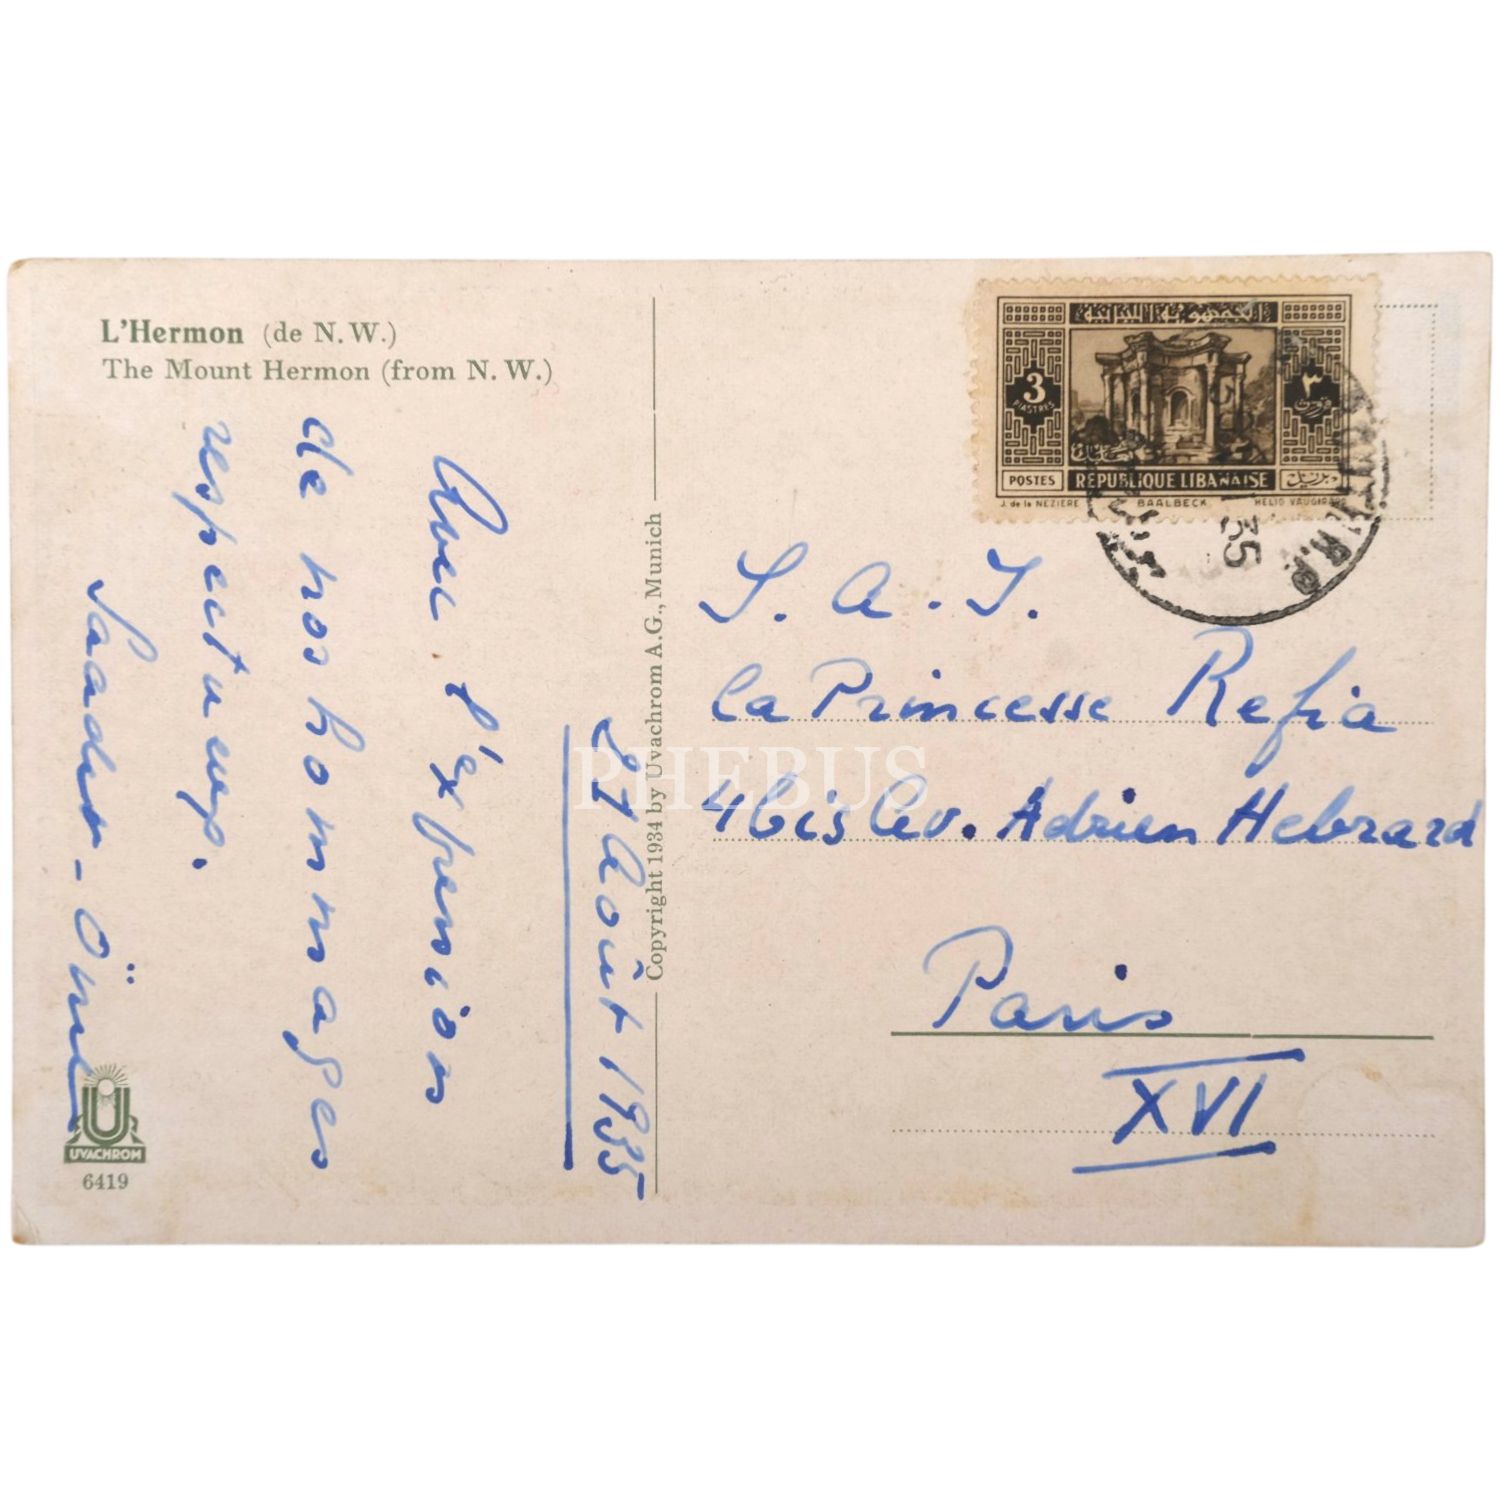 L'Hermon (de N.W.)
The Mount Hermon (from N.W.)
21 Août 1935
Avec l'expression
de nos hommages
respectueux.
Saadio - Öme
UVACHROM
6419
Copyright 1934 by Uvachrom A.G., Munich
الجمهورية اللبنانية
3
PIASTRES
٣
غروش
بعلبك
POSTES
REPUBLIQUE LIBANAISE
بريد
J. de la NEZIERE BAALBECK HELIO VAUGIRARD
R.P.
35
S. A. I.
la Princesse Refia
4 bis Av. Adrien Hebrard
Paris
XVI
PHEBUS